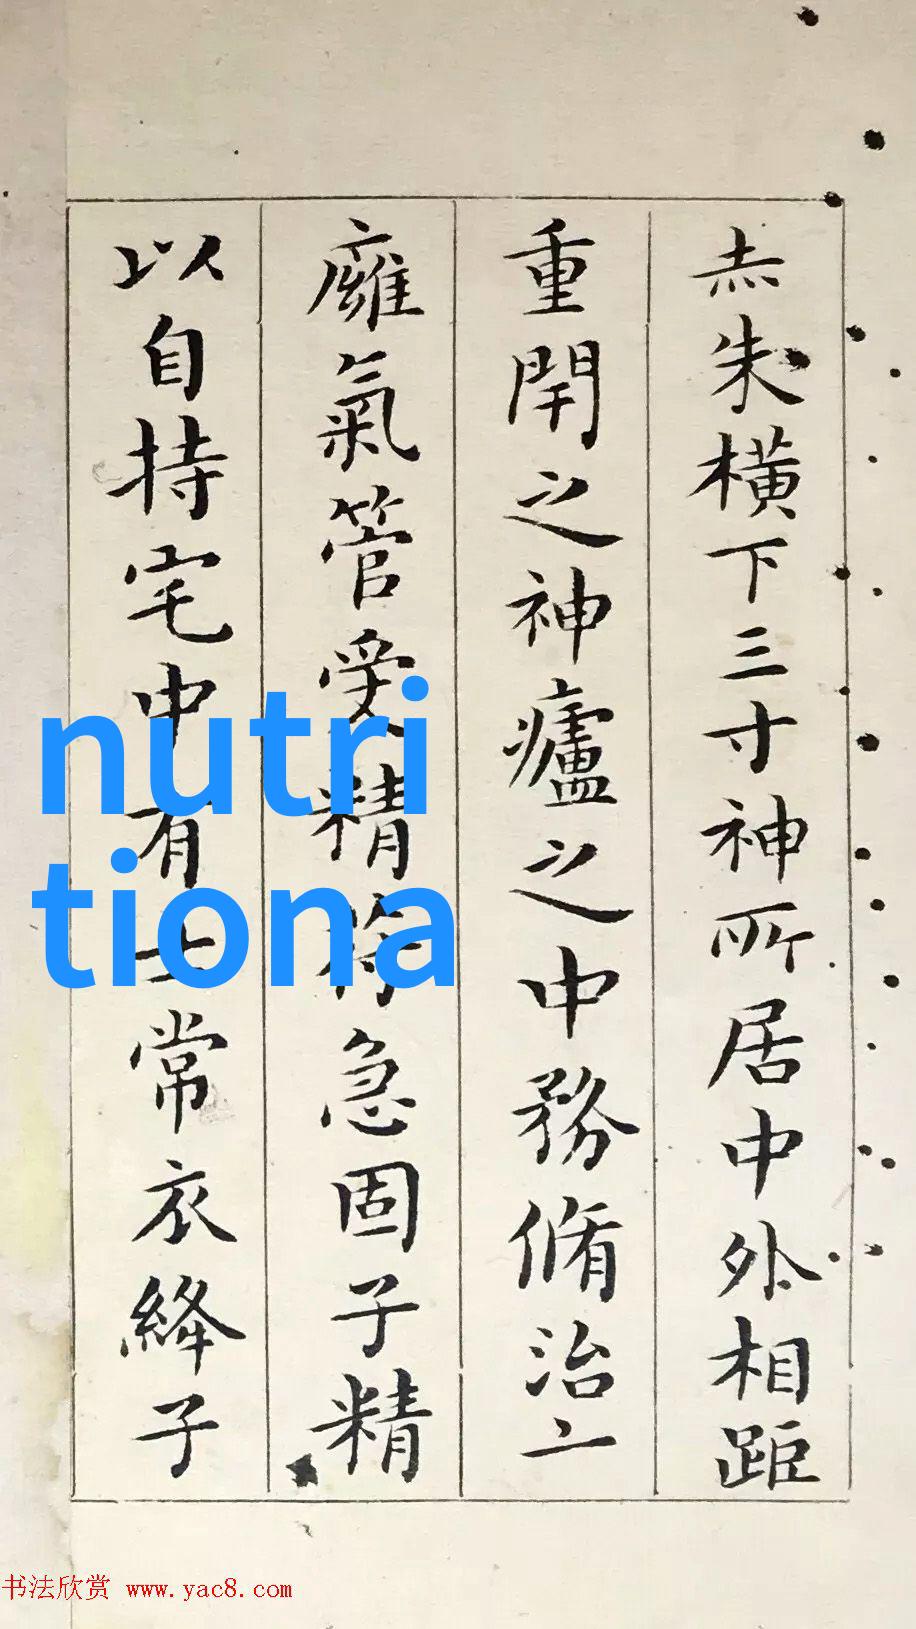 赤朱横下三寸神所居中外相距
重閈之神廬之中務脩治亠
癰氣管受精符急固子精
以自持宅中有士常衣絳子
nutri
tiona
书法欣赏 www.yac8.com